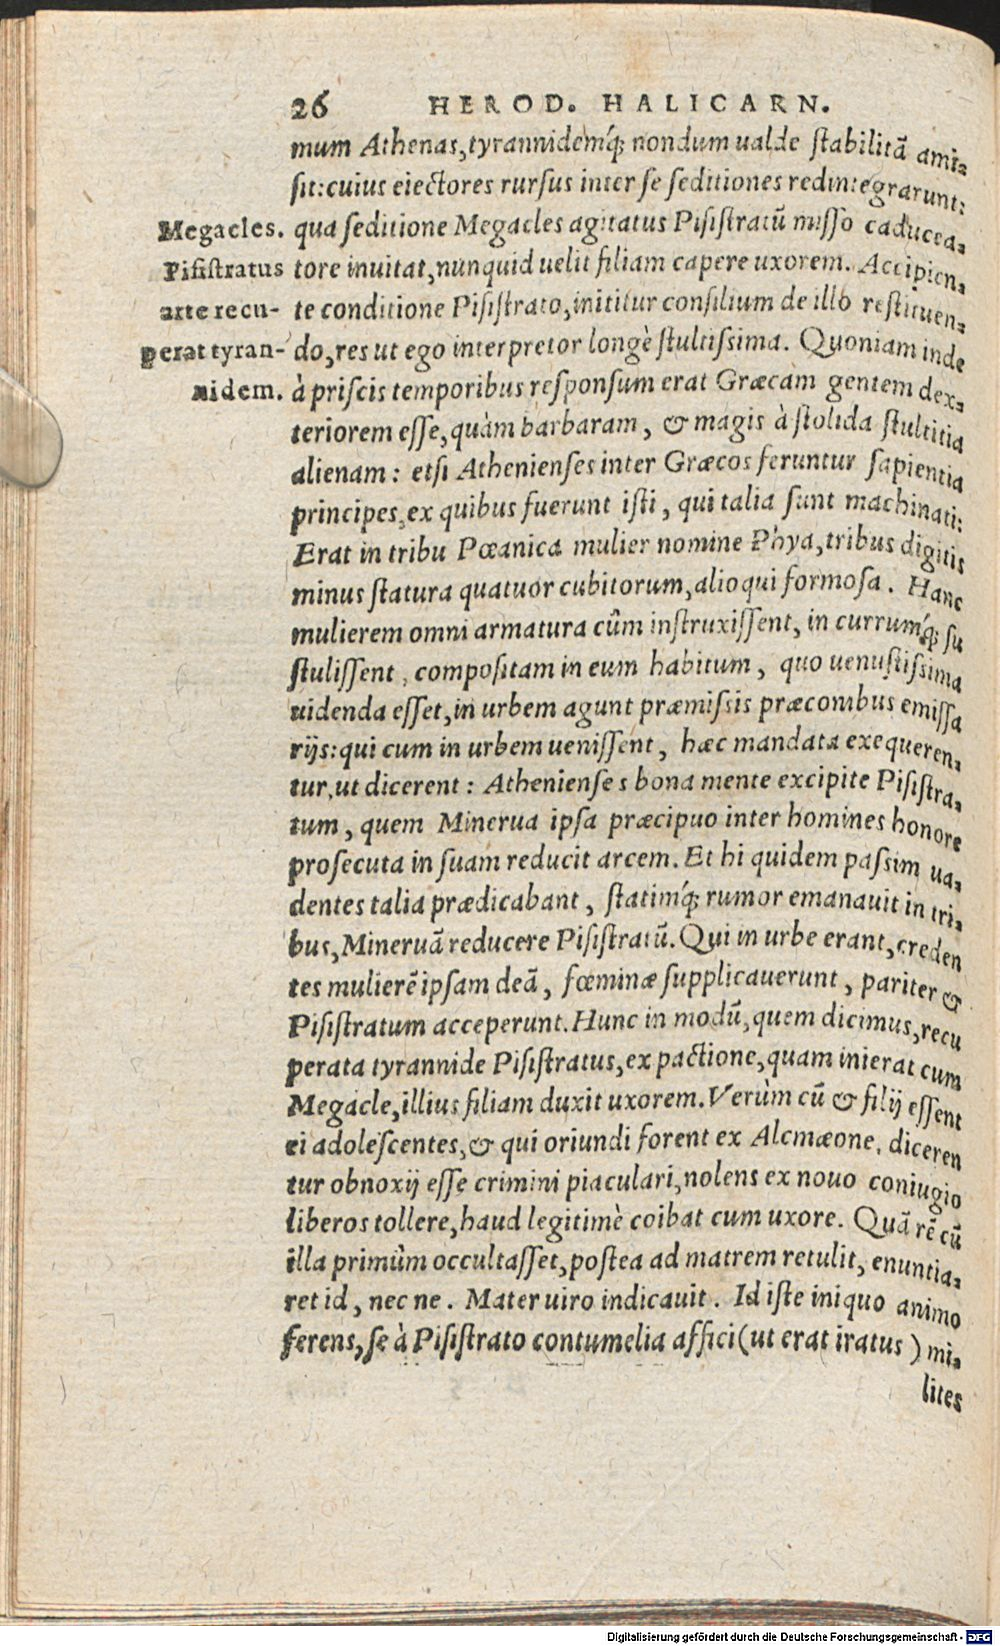 26 HEROD. HALICARN.
mum Athenas, tyrannidemq́; nondum ualde ſtabilitã ami-
ſit: cuius eiectores rurſus inter ſe ſeditiones redintegrarunt:
Megacles. qua ſeditione Megacles agitatus Piſiſtratũ miſſo caducea-
Piſiſtratus tore inuitat, nunquid uelit filiam capere uxorem. Accipien-
arte recu- te conditione Piſiſtrato, initītur conſilium de illo reſtituen-
perat tyran- do, res ut ego interpretor longè ſtultiſsima. Quoniam inde
nidem. à priſcis temporibus reſponſum erat Græcam gentem dex-
teriorem eſſe, quàm barbaram, & magis à ſtolida ſtultitia
alienam: etſi Athenienſes inter Græcos feruntur ſapientia
principes, ex quibus fuerunt iſti, qui talia ſunt machinati:
Erat in tribu Pœanica mulier nomine Phya, tribus digitis
minus ſtatura quatuor cubitorum, alioqui formoſa. Hanc
mulierem omni armatura cûm inſtruxiſſent, in currumq́; ſu
ſtuliſſent, compoſitam in eum habitum, quo uenuſtiſsima
uidenda eſſet, in urbem agunt præmiſsis præconibus emiſſa
rijs: qui cum in urbem ueniſſent, hæc mandata exequeren-
tur, ut dicerent: Athenienſes bona mente excipite Piſiſtra-
tum, quem Minerua ipſa præcipuo inter homines honore
proſecuta in ſuam reducit arcem. Et hi quidem paſsim ua-
dentes talia prædicabant, ſtatimq́; rumor emanauit in tri-
bus, Mineruã reducere Piſiſtratũ. Qui in urbe erant, creden
tes mulierẽ ipſam deã, fœminæ ſupplicauerunt, pariter &
Piſiſtratum acceperunt. Hunc in modũ, quem dicimus, recu
perata tyrannide Piſiſtratus, ex pactione, quam inierat cum
Megacle, illius filiam duxit uxorem. Verùm cũ & filij eſſent
ei adoleſcentes, & qui oriundi forent ex Alcmæone, diceren
tur obnoxij eſſe crimini piaculari, nolens ex nouo coniugio
liberos tollere, haud legitimè coibat cum uxore. Quã rẽ cũ
illa primùm occultaſſet, poſtea ad matrem retulit, enuntia-
ret id, nec ne. Mater uiro indicauit. Id iſte iniquo animo
ferens, ſe à Piſiſtrato contumelia affici (ut erat iratus) mi-
lites
Digitalisierung gefördert durch die Deutsche Forschungsgemeinschaft - DFG